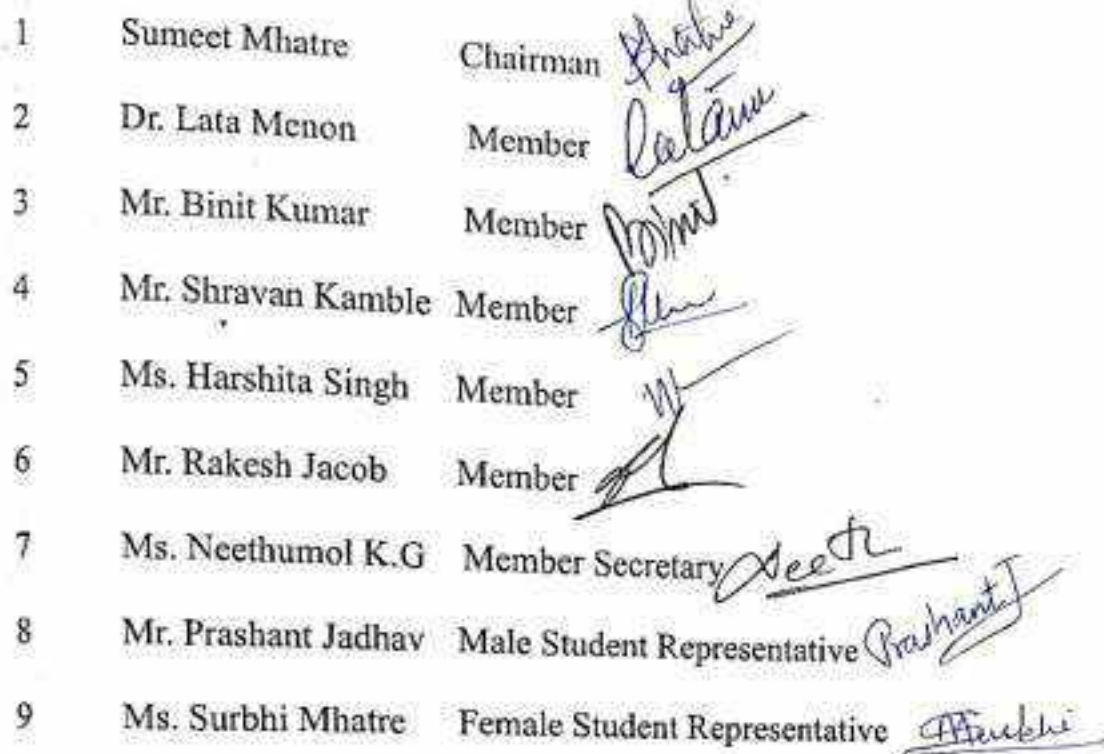 1 Sumeet Mhatre Chairman
2 Dr. Lata Menon Member
3 Mr. Binit Kumar Member
4 Mr. Shravan Kamble Member
5 Ms. Harshita Singh Member
6 Mr. Rakesh Jacob Member
7 Ms. Neethumol K.G Member Secretary
8 Mr. Prashant Jadhav Male Student Representative Prashant J
9 Ms. Surbhi Mhatre Female Student Representative